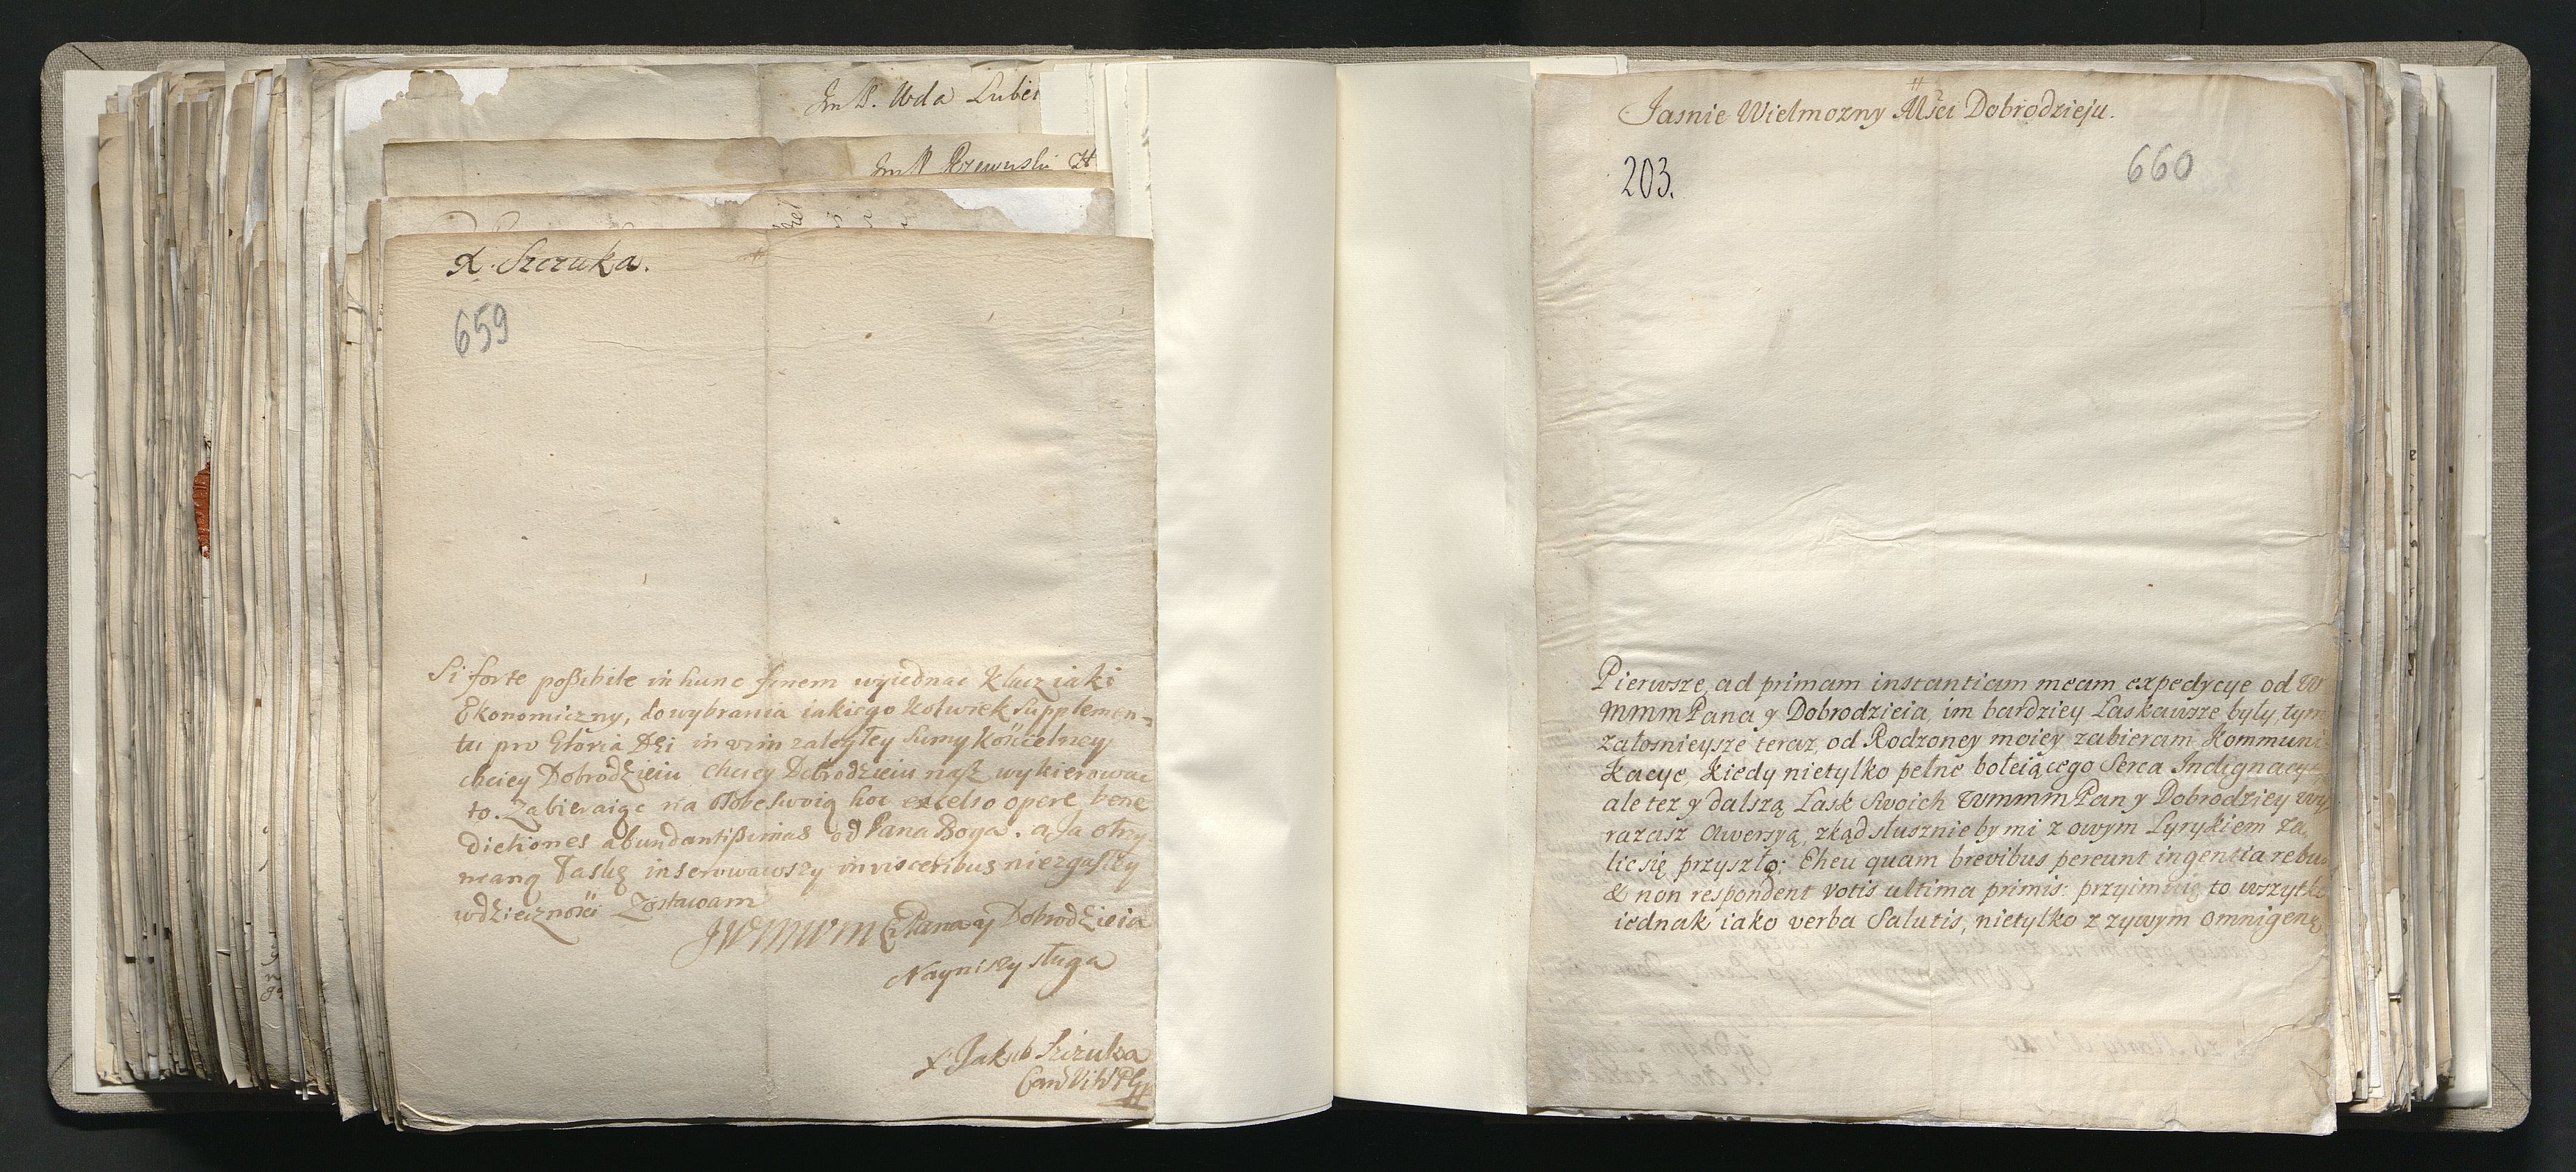 Im P. Wda Lubel
Im P Rzewuski H
X. Szczuka.
659
Si forte possibile in hunc finem wyiednac klucz iaki
Ekonomiczny, do wybrania iakiego kolwiek Supplemen-
tu pro Gloria Dei in vim zaległey Sumy Kościelney
chciey Dobrodzieiu chciey Dobrodzieiu nasz wykierowac
to. Zabieraiąc na Osobe Swoią hoc excelso opere bene
dictiones abundantissimas od Pana Boga. a Ja otrzy
maną Łaskę inserowawszy in visceribus niezgasłey
wdzięcznośći Zostawam
JWMWM Pana y Dobrodzieia
Nayniszy sługa
X. Jakub Szczuka
Can Vil
Jasnie Wielmozny Mści Dobrodzieju.
203.
660
Pierwsze, ad primam instantiam meam expedycye od W
mmm Pana y Dobrodzieia, im bardziey Laskawsze były, tym
załosnieysze teraz, od Rodzoney moiey zabieram Kommuni-
kacye, kiedy nietylko pełne boleiącego Serca Indignacye
ale tez y dalszą Lask Swoich Wmmm Pan y Dobrodziey wy
razasz Awersyą, zkąd słusznie by mi z owym Lyrykiem za,
lic się przyszło: Eheu quam brevibus pereunt ingentia rebus
& non respondent votis ultima primis: przyimuię to wszytko
iednak iako verba Salutis, nietylko z zywym omnigenę